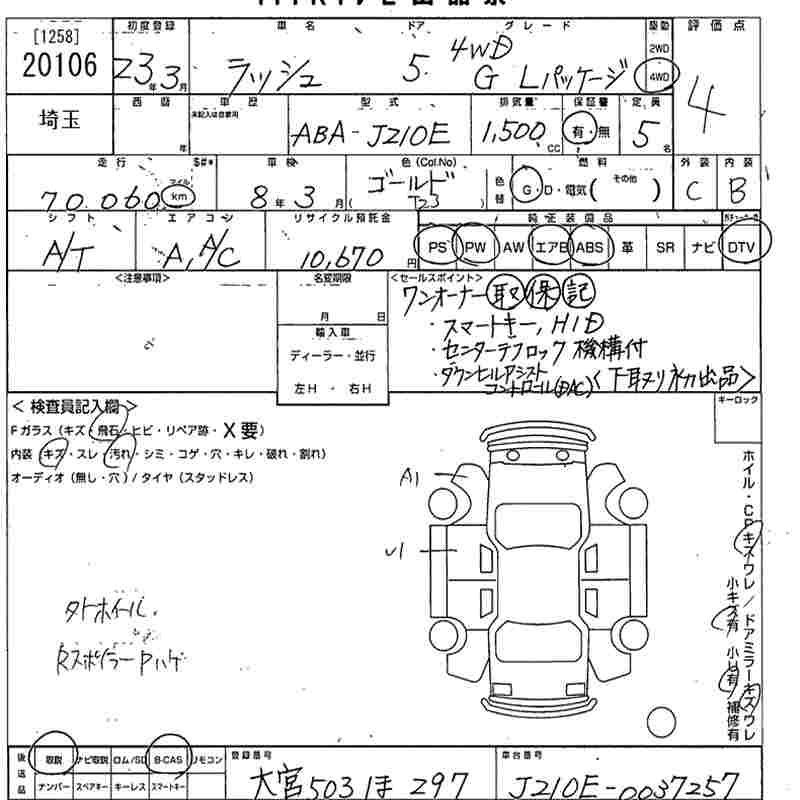 [1258]
20106
初度登録 車名 ドア グレード 駆動 評価点
23年 3月 ラッシュ 5 4WD G Lパッケージ 2WD 4WD 4
埼玉
西暦 車歴 型式 排気量 保証書 定員
年 ABA-J210E 1,500 CC 有・無 5名
走行 車検 色(Col.No) 燃料 外装 内装
70,060 マイル km 8年 3月 ゴールド (T23) 色替 G・D・電気( その他 ) C B
シフト エアコン リサイクル預託金 純正装備品
A/T A,A/C 10,670円 PS PW AW エアB ABS 革 SR ナビ DTV
<注意事項> 名変期限 <セールスポイント>
月 日
輸入車
ディーラー・並行
左H・右H
ワンオーナー 取 保 記
・スマートキー, HID
・センターデフロック機構付
・ダウンヒルアシスト
コントロール(DAC) <下取り初出品>
<検査員記入欄> キーロック
Fガラス(キズ・飛石・ヒビ・リペア跡・X要)
内装(キズ・スレ・汚れ・シミ・コゲ・穴・キレ・破れ・割れ)
オーディオ(無し・穴)/タイヤ(スタッドレス)
A1
U1
ホイル・CPキズワレ/ドアミラーキズワレ
小キズ有 小凹有 補修有
タトホイール.
Rスポイラー Pハゲ
後送品 取説 ナビ取説 ロム/SD B-CAS リモコン 登録番号 車台番号
ナンバー スペアキー キーレス スマートキー 大宮 503 ほ 297 J210E-0037257